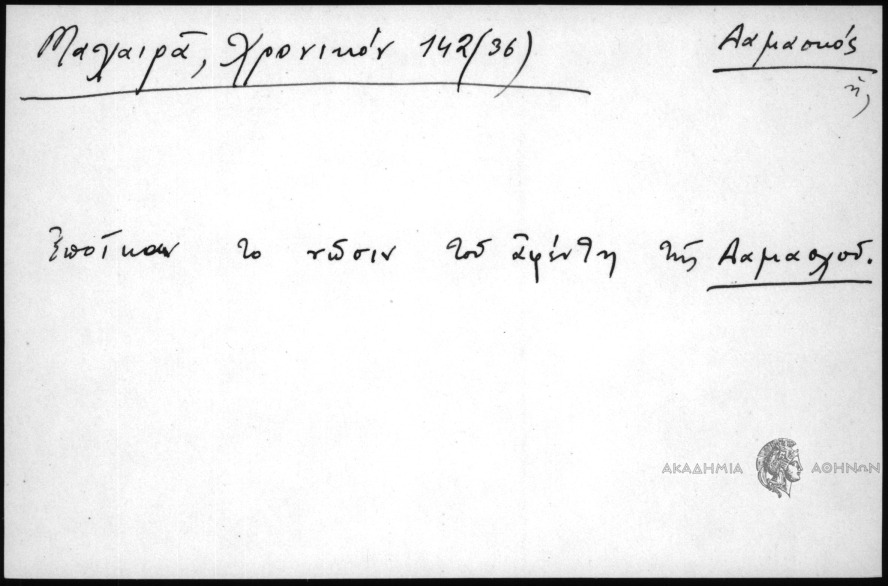 Μαχαιρᾶ, Χρονικόν 142(36)
Δαμασκός
ἡ,
Ἐποῖκαν το νῶσιν τοῦ ἀφέντη τῆς Δαμασχοῦ.
ΑΚΑΔΗΜΙΑ ΑΘΗΝΩΝ